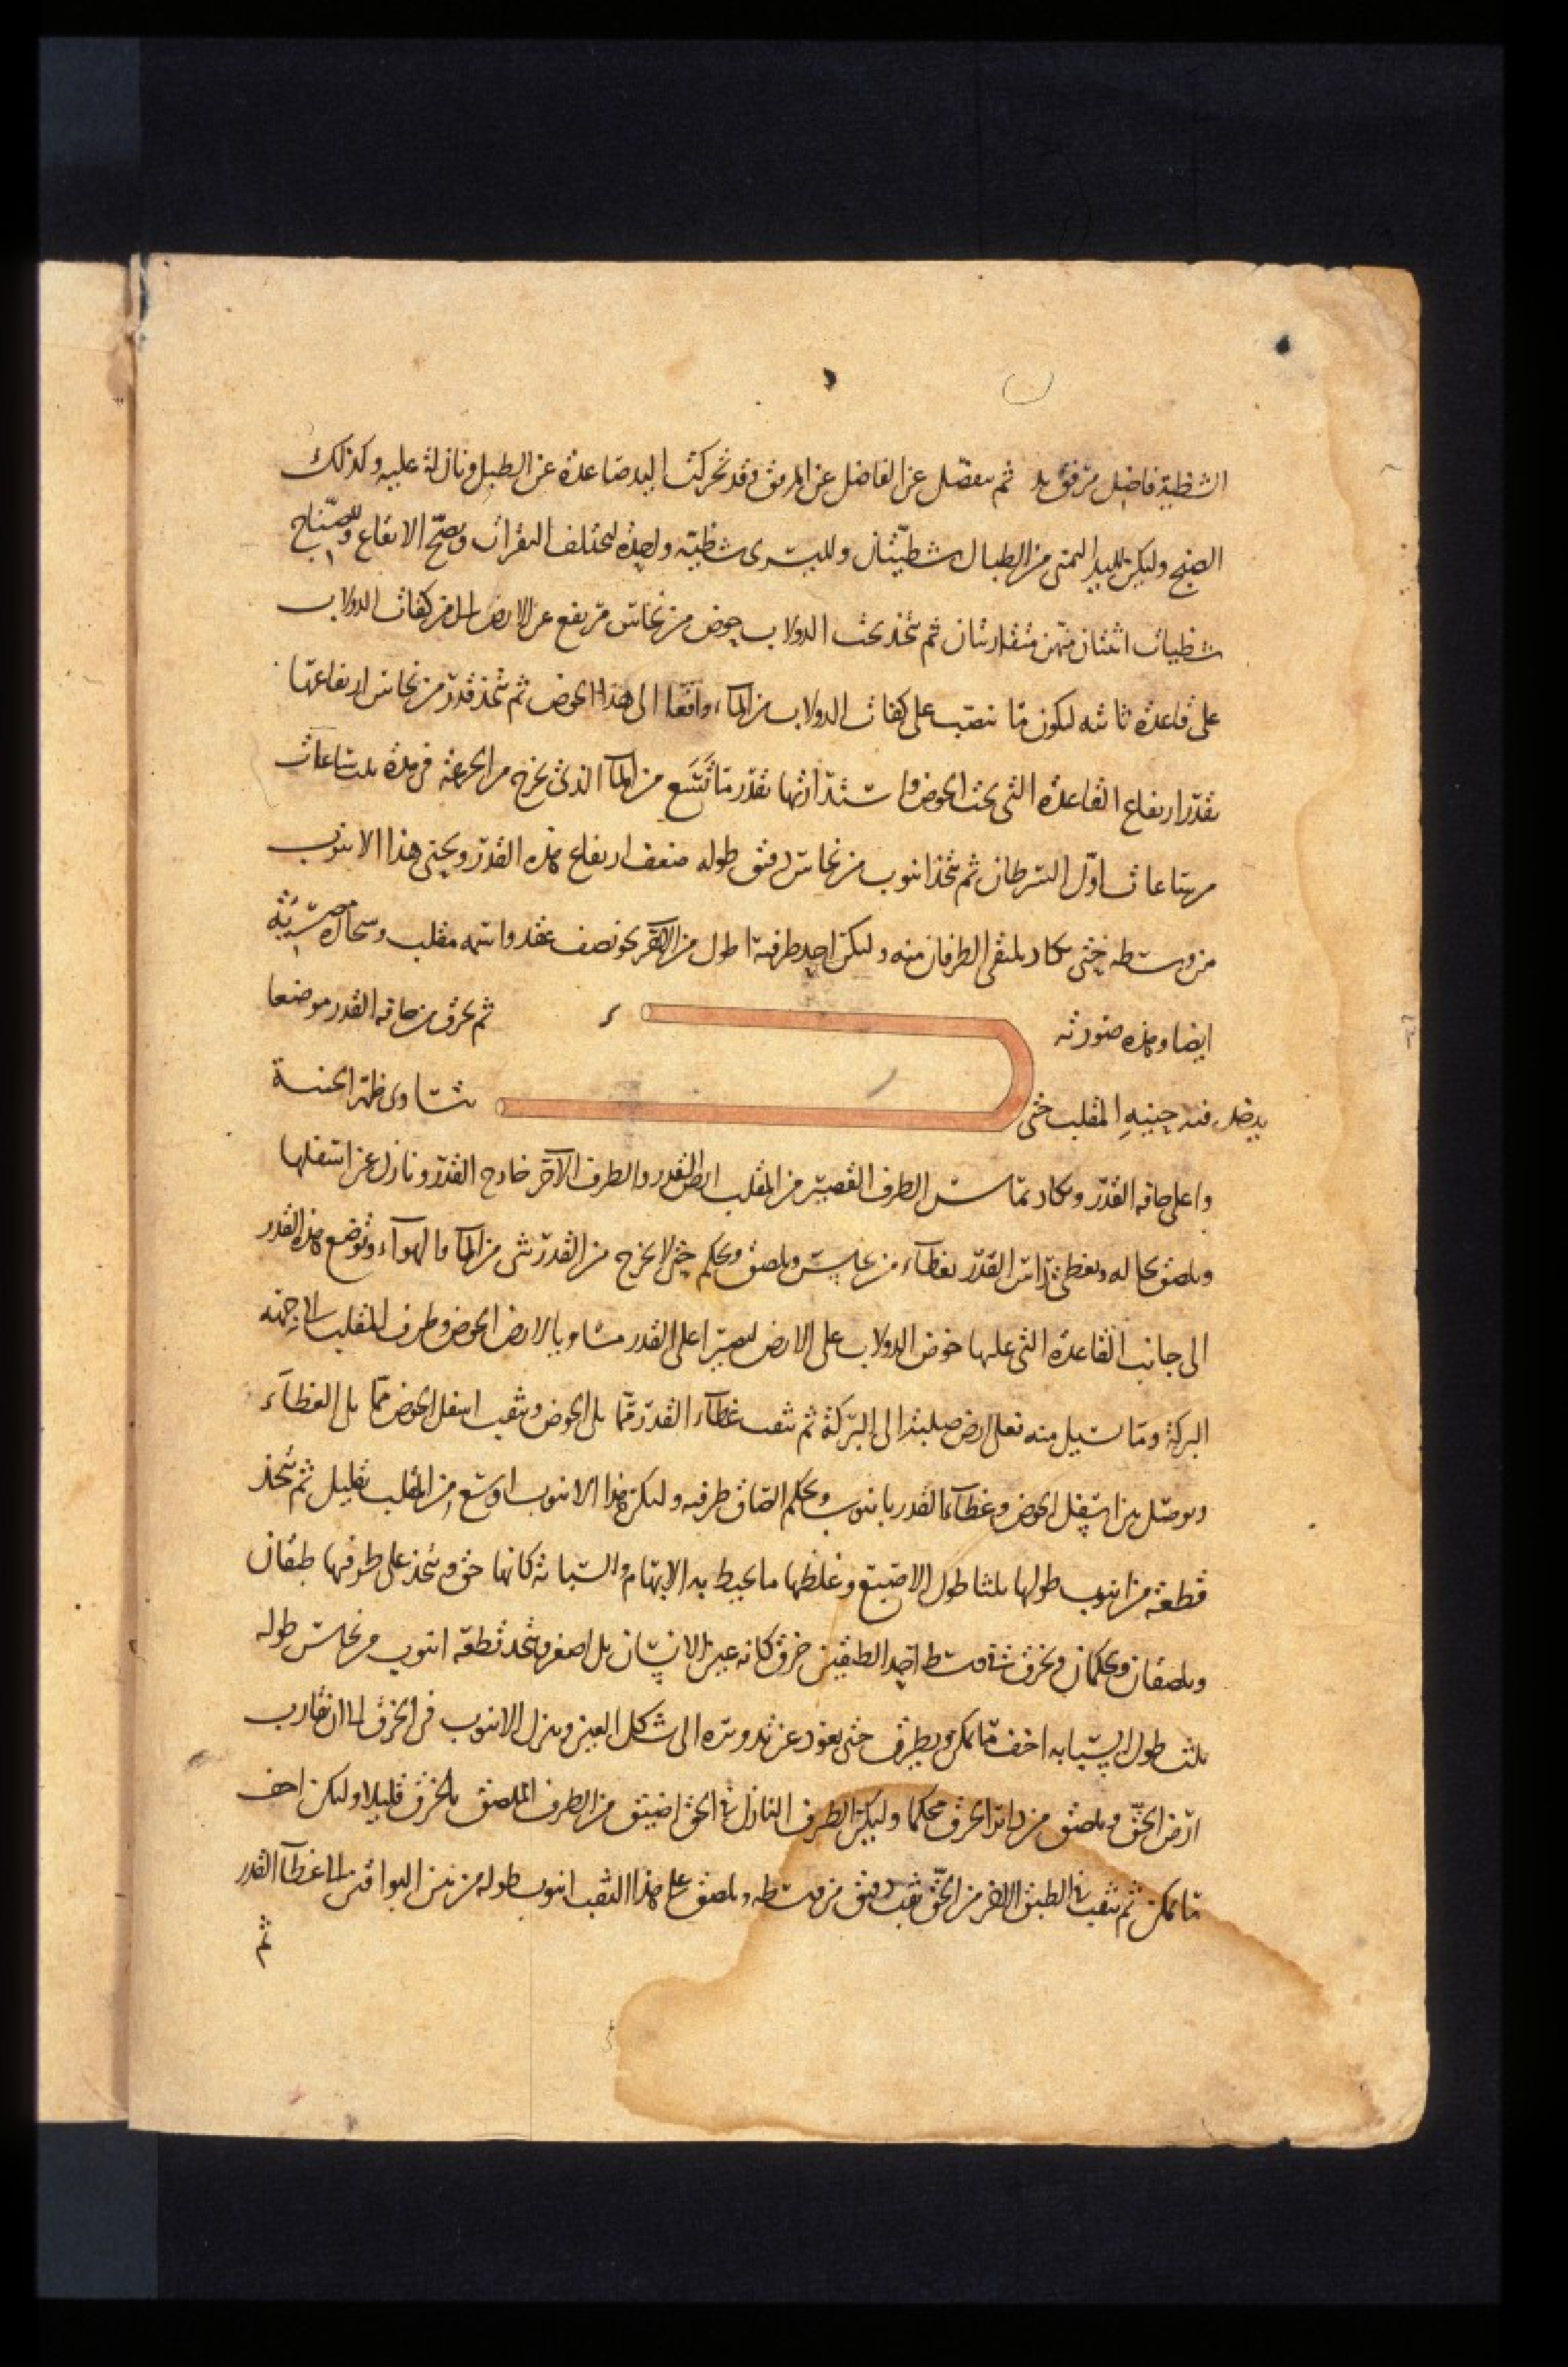 الشظية فاضل مرفق يد ثم ينفصل عن الفاضل عن المرفق وقد تحركت اليد صاعدة عن الطبل ونازلة عليه وكذلك
الصنج وليكن لليد اليمنى من الطبال شظيتان ولليسرى شظية واحدة لتختلف النقرات ويصح الايقاع وللصناج
شظيات اثنتان منهن متقاربتان ثم يتخذ تحت الدولاب حوض من نحاس مرتفع عن الارض الى كفات الدولاب
على قاعدة ثابتة ليكون ما ينصب على كفات الدولاب من الماء واقعا الى هذا الحوض ثم تتخذ قدر من نحاس ارتفاعها
بقدر ارتفاع القاعدة التي تحت الحوض واستدارتها بقدر ما تتسع من الماء الذي يخرج من الجزعة في مدة ثلث ساعات
من ساعات اول السرطان ثم يتخذ انبوب من نحاس دقيق طوله ضعف ارتفاع هذه القدر ويحنى هذا الانبوب
من وسطه حتى يكاد يلتقى الطرفان منه وليكن احد طرفيه اطول من الاخر نحو نصف عقد واسمه مقلب وسحارة مصرية
ايضا وهذه صورته ثم يخرق من حافة القدر موضعا
يدخل فيه حنية المقلب حتى يتساوى ظهر الحنية
واعلى حافة القدر ويكاد يماس الطرف القصير من المقلب ارض القدر والطرف الآخر خارج القدر ونازل عن اسفلها
ويلصق بحاله ويغطى راس القدر بغطاء من نحاس ويلصق ويحكم حتى لا يخرج من القدر شى من الماء والهواء وتوضع هذه القدر
الى جانب القاعدة التي عليها حوض الدولاب على الارض ليصير اعلى القدر مساويا لارض الحوض وطرف المقلب الى جهة
البركة وما يسيل منه فعلى ارض صلبة الى البركة ثم يثقب غطاء القدر مما يلى الحوض ويثقب اسفل الحوض مما يلى الغطاء
ويوصل بين اسفل الحوض وغطاء القدر بانبوب ويحكم الصاق طرفيه وليكن هذا الانبوب اوسع من المقلب بقليل ثم يتخذ
قطعة من انبوب طولها ثلثا طول الاصبع وغلظها ما يحيط به الابهام والسبابة كانها حق ويتخذ على طرفيها طبقان
ويلصقان ويحكمان ويخرق في وسط احد الطبقين خرق كانه عين الانسان بل اصغر ويتخذ قطعة انبوب من نحاس طوله
ثلث طول السبابة اخف ما يمكن ويطرق حتى يعود عن تدويره الى شكل العين وينزل الانبوب في الخرق الى ان يقارب
ارض الحق ويلصق من دائر الخرق محكما وليكن الطرف النازل في الحق اضيق من الطرف الملصق بالخرق قليلا وليكن اخف
ما يمكن ثم يثقب في الطبق الاخر من الحق ثقب دقيق من وسطه ويلصق على هذا الثقب انبوب طوله من بين البواقين الى غطاء القدر
ثم